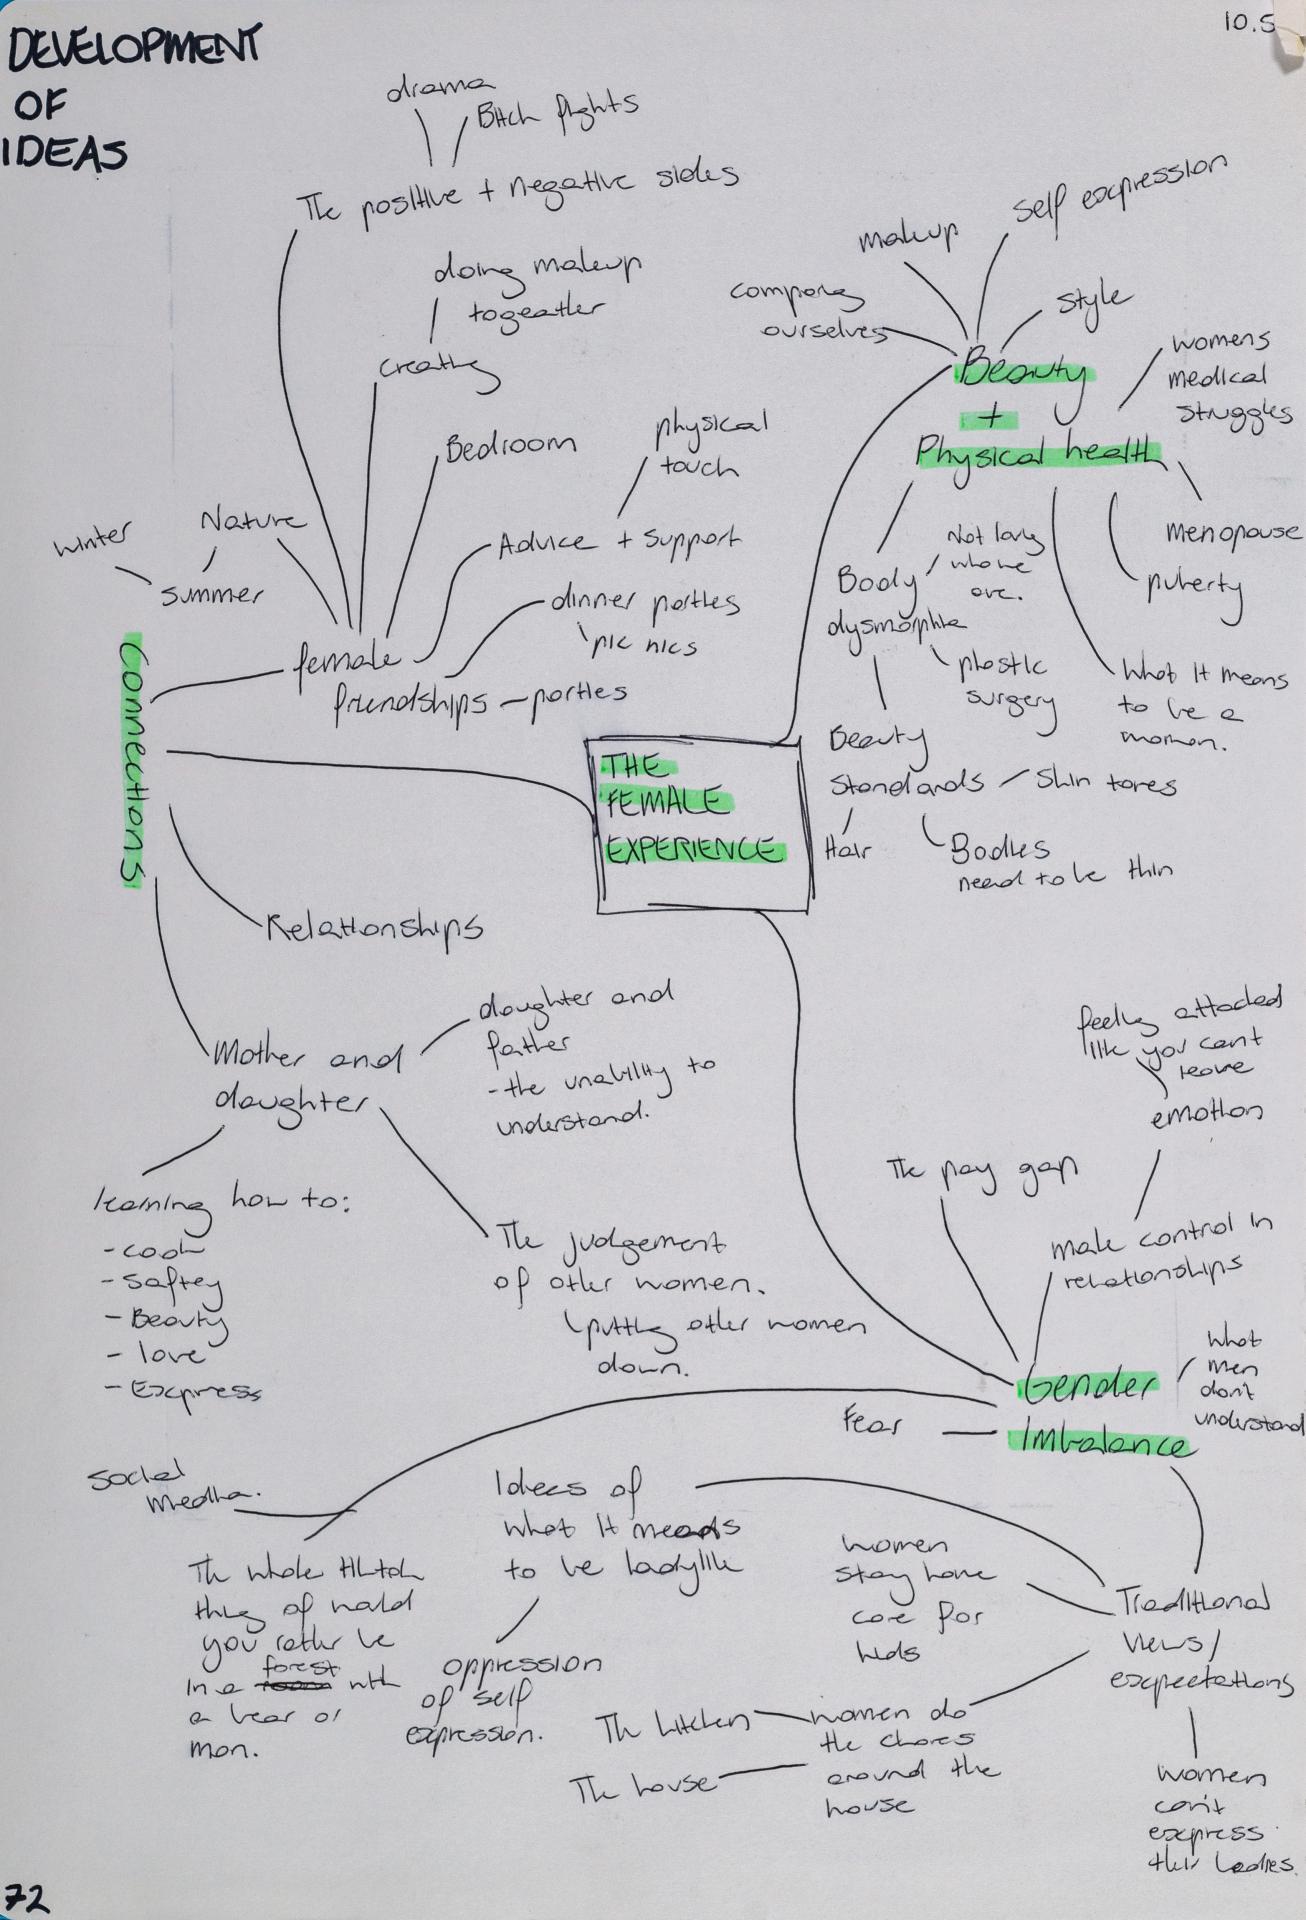 DEVELOPMENT
OF
IDEAS
10.5
drama
Bitch fights
The positive + negative sides
doing makeup
togeather
creating
Bedroom
physical
touch
Nature
winter
summer
Advice + support
dinner parties
pic nics
female
friendships
parties
Connections
makeup
self expression
comparing
ourselves
style
Beauty
+
Physical health
womens
medical
struggles
menopause
puberty
Not loving
who we
are.
Body
dysmorphia
plastic
surgery
What it means
to be a
woman.
Beauty
Standards
Skin tones
Hair
Bodies
need to be thin
THE
FEMALE
EXPERIENCE
Relationships
Mother and
daughter
daughter and
father
- the unability to
understand.
learning how to:
- cook
- Saftey
- Beauty
- love
- Express
The judgement
of other women.
putting other women
down.
feeling attached
like you cant
leave
emotion
The pay gap
male control in
relationships
Gender
Imbalance
what
men
don't
understand
Fear
social
media.
The whole tiktok
thing of would
you rather be
forest
in a with
a bear or
man.
Ideas of
what it means
to be ladylike
oppression
of self
expression.
women
stay home
care for
kids
Traditional
views/
expectations
women do
the chores
around the
house
The kitchen
The house
women
can't
express
their bodies.
72